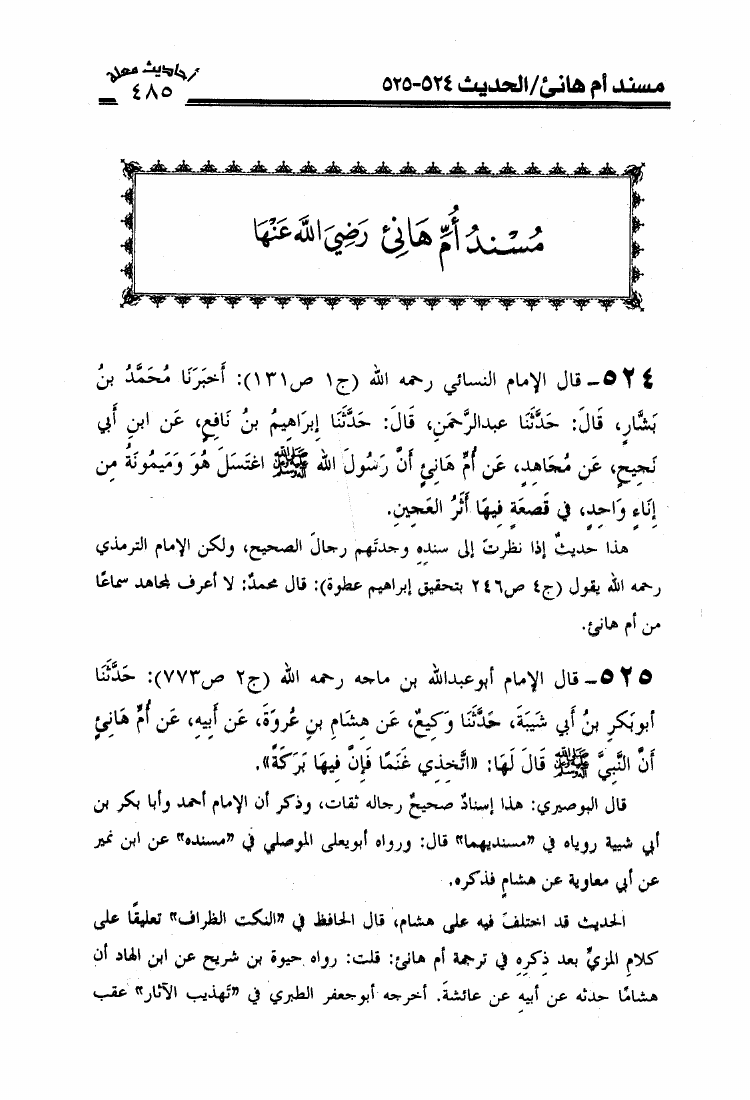 مسند أم هانئ/الحديث ٥٢٤-٥٢٥
أحاديث معلة
٤٨٥
مُسْنَدُ أُمِّ هَانِئ رَضِيَ اللَّه عَنْهَا
٥٢٤- قال الإمام النسائي رحمه الله (ج١ ص١٣١): أَخبَرَنَا مُحَمَّدُ بنُ
بَشَّارٍ، قَالَ: حَدَّثَنَا عبدالرَّحمَنِ، قَالَ: حَدَّثَنَا إِبرَاهِيمُ بنُ نَافِعٍ، عَن ابنِ أَبِي
نَجِيحٍ، عَن مُجَاهِدٍ، عَن أُمِّ هَانِئٍ أَنَّ رَسُولَ الله ﷺ اغتَسَلَ هُوَ وَمَيمُونَةُ مِن
إِنَاءٍ وَاحِدٍ، في قَصعَةٍ فِيهَا أَثَرُ العَجِينِ.
هذا حديثٌ إذا نظرتَ إلى سندِه وجدتَهم رجالَ الصحيح، ولكن الإمام الترمذي
رحمه الله يقول (ج٤ ص٢٤٦ بتحقيق إبراهيم عطوة): قال محمدٌ: لا أعرف لمجاهد سماعًا
من أم هانئ.
٥٢٥- قال الإمام أبوعبدالله بن ماجه رحمه الله (ج٢ ص٧٧٣): حَدَّثَنَا
أبوبَكرِ بنُ أَبي شَيبَةَ، حَدَّثَنَا وَكيعٌ، عَن هِشَامِ بنِ عُروَةَ، عَن أَبِيهِ، عَن أُمِّ هَانِئٍ
أَنَّ النَّبِيَّ ﷺ قَالَ لَهَا: «اتَّخِذِي غَنَمًا فَإِنَّ فِيهَا بَرَكَةً».
قال البوصيري: هذا إسنادٌ صحيحٌ رجاله ثقات، وذكر أن الإمام أحمد وأبا بكر بن
أبي شيبة روياه في "مسنديهما" قال: ورواه أبويعلى الموصلي في "مسنده" عن ابن نمير
عن أبي معاوية عن هشامٍ فذكره.
الحديث قد اختلفَ فيه على هشام، قال الحافظ في "النكت الظراف" تعليقًا على
كلام المزيِّ بعد ذِكرِه في ترجمة أم هانئ: قلت: رواه حيوة بن شريح عن ابن الهاد أن
هشامًا حدثه عن أبيه عن عائشةَ. أخرجه أبوجعفر الطبري في "تهذيب الآثار" عقب